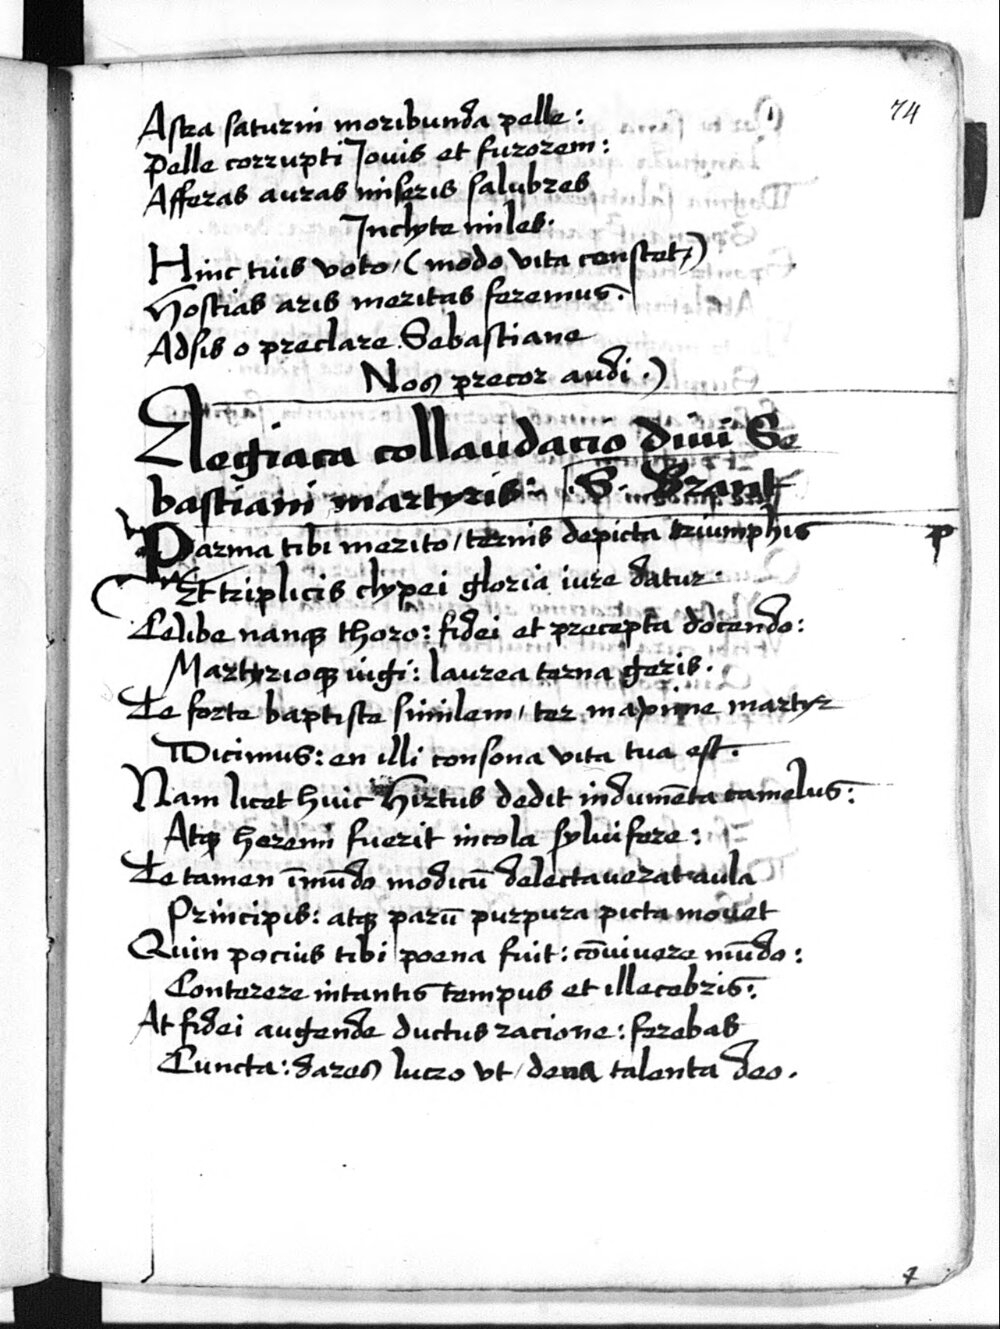 74
Astra saturni moribunda pelle:
Pelle corrupti Jouis et furorem:
Afferas auras miseris salubres
Inclyte miles.
Hinc tuis voto/(modo vita constet/)
Hostias aris meritas feremus:
Adsis o preclare Sebastiane
Nos precor audi.)
Elegiaca collaudacio diui Se
bastiani martyris: .S. Brant
Parma tibi merito/ternis depicta triumphis
p
Et triplicis clypei gloria iure datur.
Celibe nanqꝫ thoro: fidei et precepta docendo:
Martyrioqꝫ iugi: laurea terna geris.
Te forte baptiste similem/ter maxime martyr
Dicimus: en illi consona vita tua est.
Nam licet huic hirtus dedit indumēta camelus:
Atqꝫ heremi fuerit incola syluifere:
Te tamen ī mūdo modicū delectauerat aula
Principis: atqꝫ parū purpura picta mouet
Quin pocius tibi poena fuit: cōuiuere mūdo:
Conterere intantis tempus et illecebris:
At fidei augende ductus racione: ferebas
Cuncta: dares lucro vt/dena talenta deo.
7